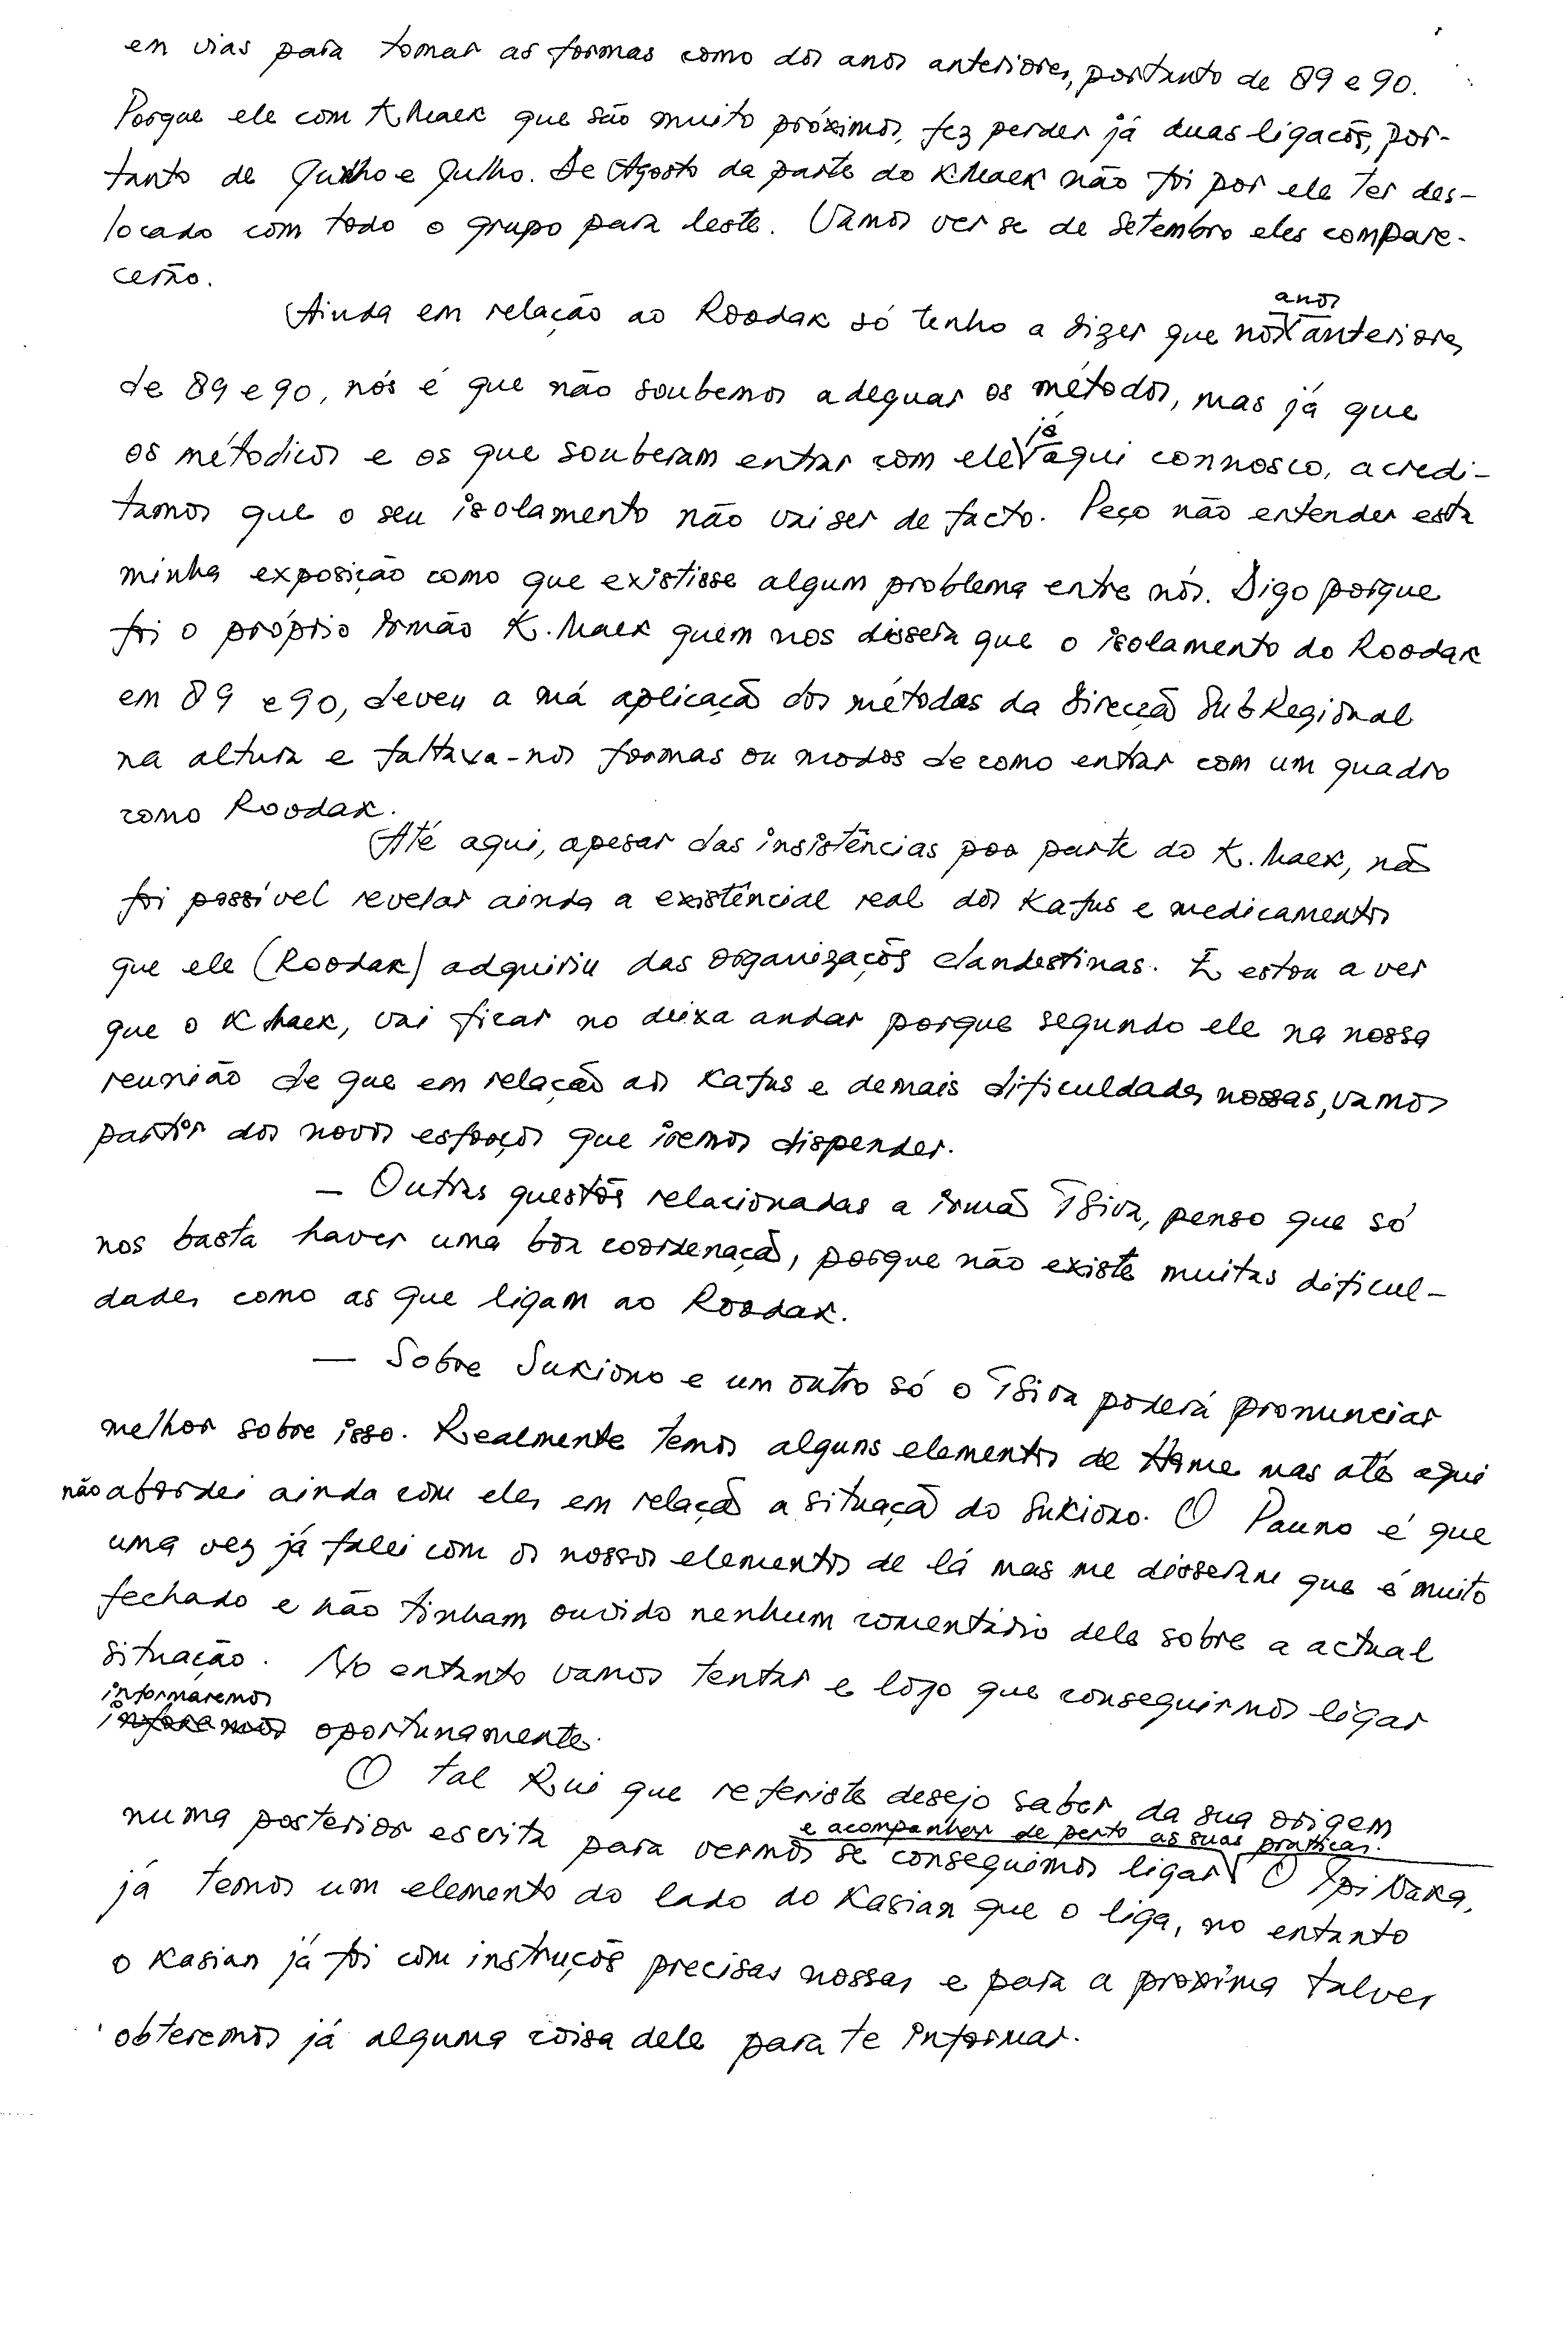 en vias para tomar as formas como dos anos anteriores, portanto de 89 e 90.
Porque ele com K.haek que são muito próximos, fez perder já duas ligacõs, por-
tanto de Junho e Julho. De Agosto da parte do Khaek não foi por ele ter des-
locado com todo o grupo para leste. Vamos ver se de Setembro eles compare-
cerão.
Ainda em relação ao Roodak só tenho a dizer que nos anos anteriores
de 89 e 90, nós é que não soubemos adequar os métodos, mas já que
os métodicos e os que souberam entrar com ele já aqui connosco, acredi-
tamos que o seu isolamento não vai ser de facto. Peço não entender esta
minha exposição como que existisse algum problema entre nós. Digo porque
foi o próprio irmão K.haek quem nos dissera que o isolamento do Roodak
em 89 e 90, deveu a má aplicaçã dos métodos da Direcçã SubRegional
na altura e faltava-nos formas ou modos de como entrar com um quadro
como Roodak.
Até aqui, apesar das insistências por parte do K.haek, nã
foi possível revelar ainda a existêncial real dos Kafus e medicamentos
que ele (Roodak) adquiriu das organizaçõs clandestinas. E estou a ver
que o Khaek, vai ficar no deixa andar porque segundo ele na nossa
reunião de que em relaçã aos Kafus e demais dificuldades nossas, vamos
partir dos novos esforços que iremos dispender.
— Outras questõs relacionadas a irmã Tsiva, penso que só
nos basta haver uma boa coordenaçã, porque não existe muitas dificul-
dades como as que ligam ao Roodak.
— Sobre Sukiono e um outro só o Tsiva poderá pronunciar
melhor sobre isso. Realmente temos alguns elementos de Hame mas até aqui
não abordei ainda com eles em relaçã a situaçã do Sukiono. O Pauno é que
uma vez já falei com os nossos elementos de lá mas me disseram que é muito
fechado e não tinham ouvido nenhum comentário dele sobre a actual
situação. No entanto vamos tentar e logo que conseguirmos ligar
informaremos oportunamente.
O tal Rui que referiste desejo saber da sua origem
numa posterior escrita para vermos se conseguimos ligar e acompanhar de perto as suas praticas. O Tpi Naka,
já temos um elemento do lado do Kasian que o liga, no entanto
o Kasian já foi com instruçõs precisas nossas e para a proxima talver
obteremos já alguma coisa dele para te informar.